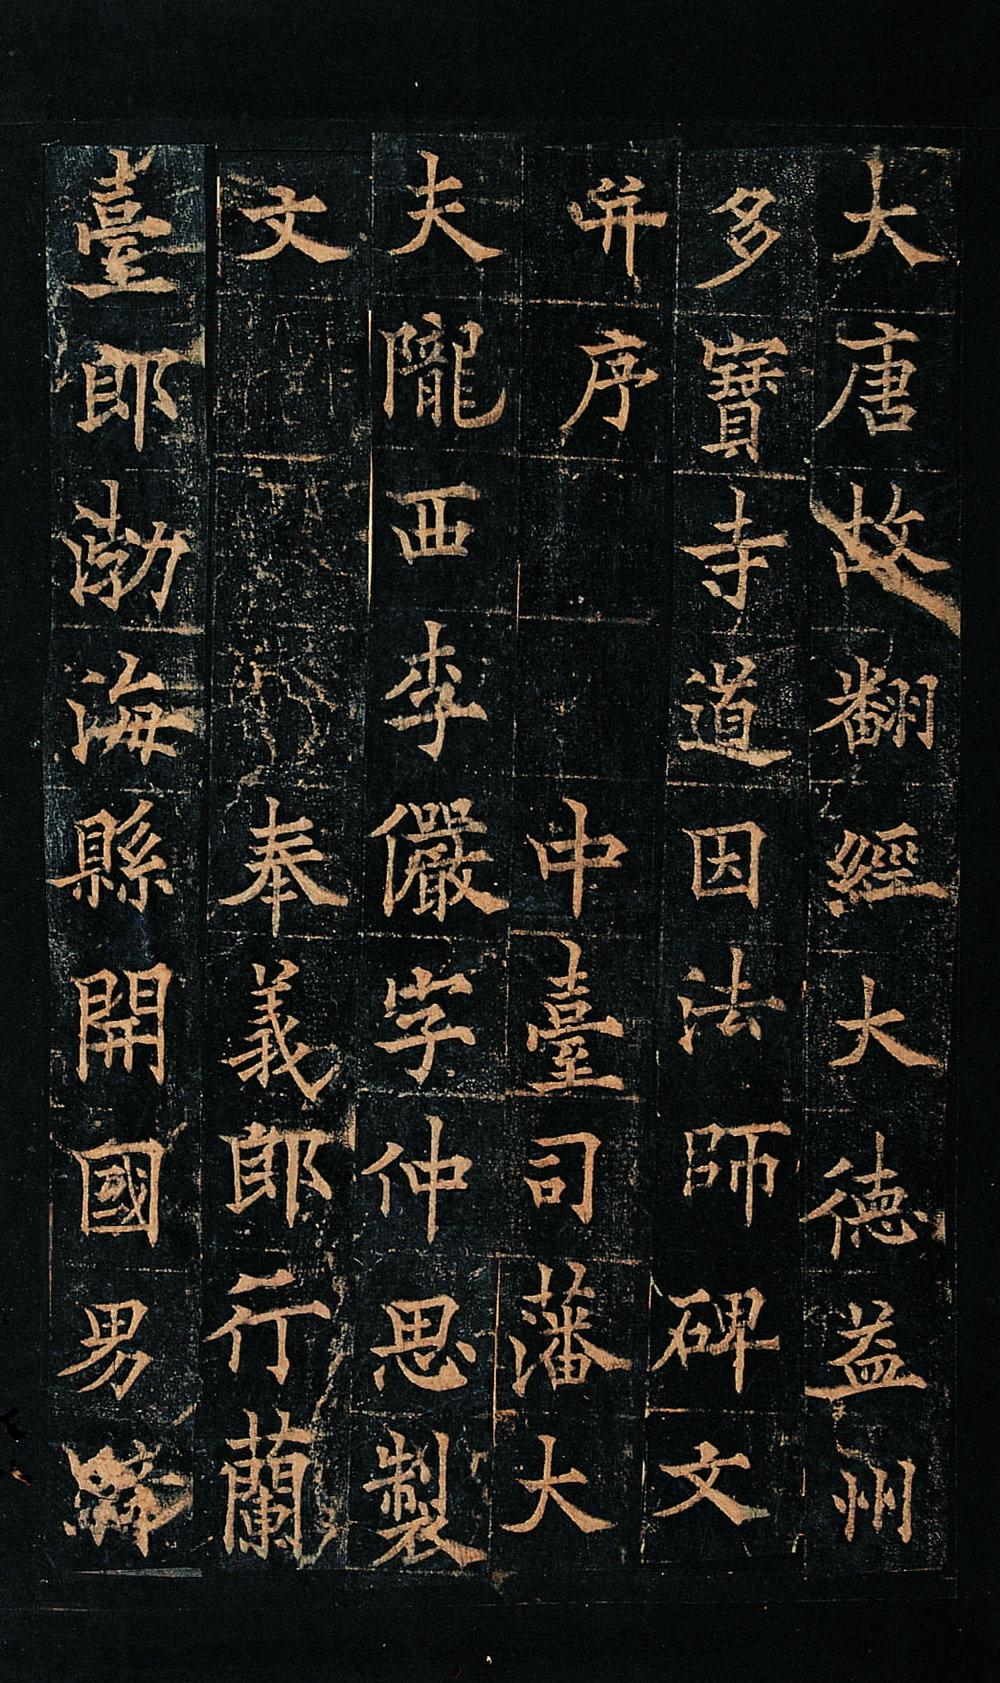 大唐故翻經大德益州
多寶寺道因法師碑文
并序 中臺司藩大
夫隴西李儼字仲思製
文 奉義郎行蘭
臺郎渤海縣開國男